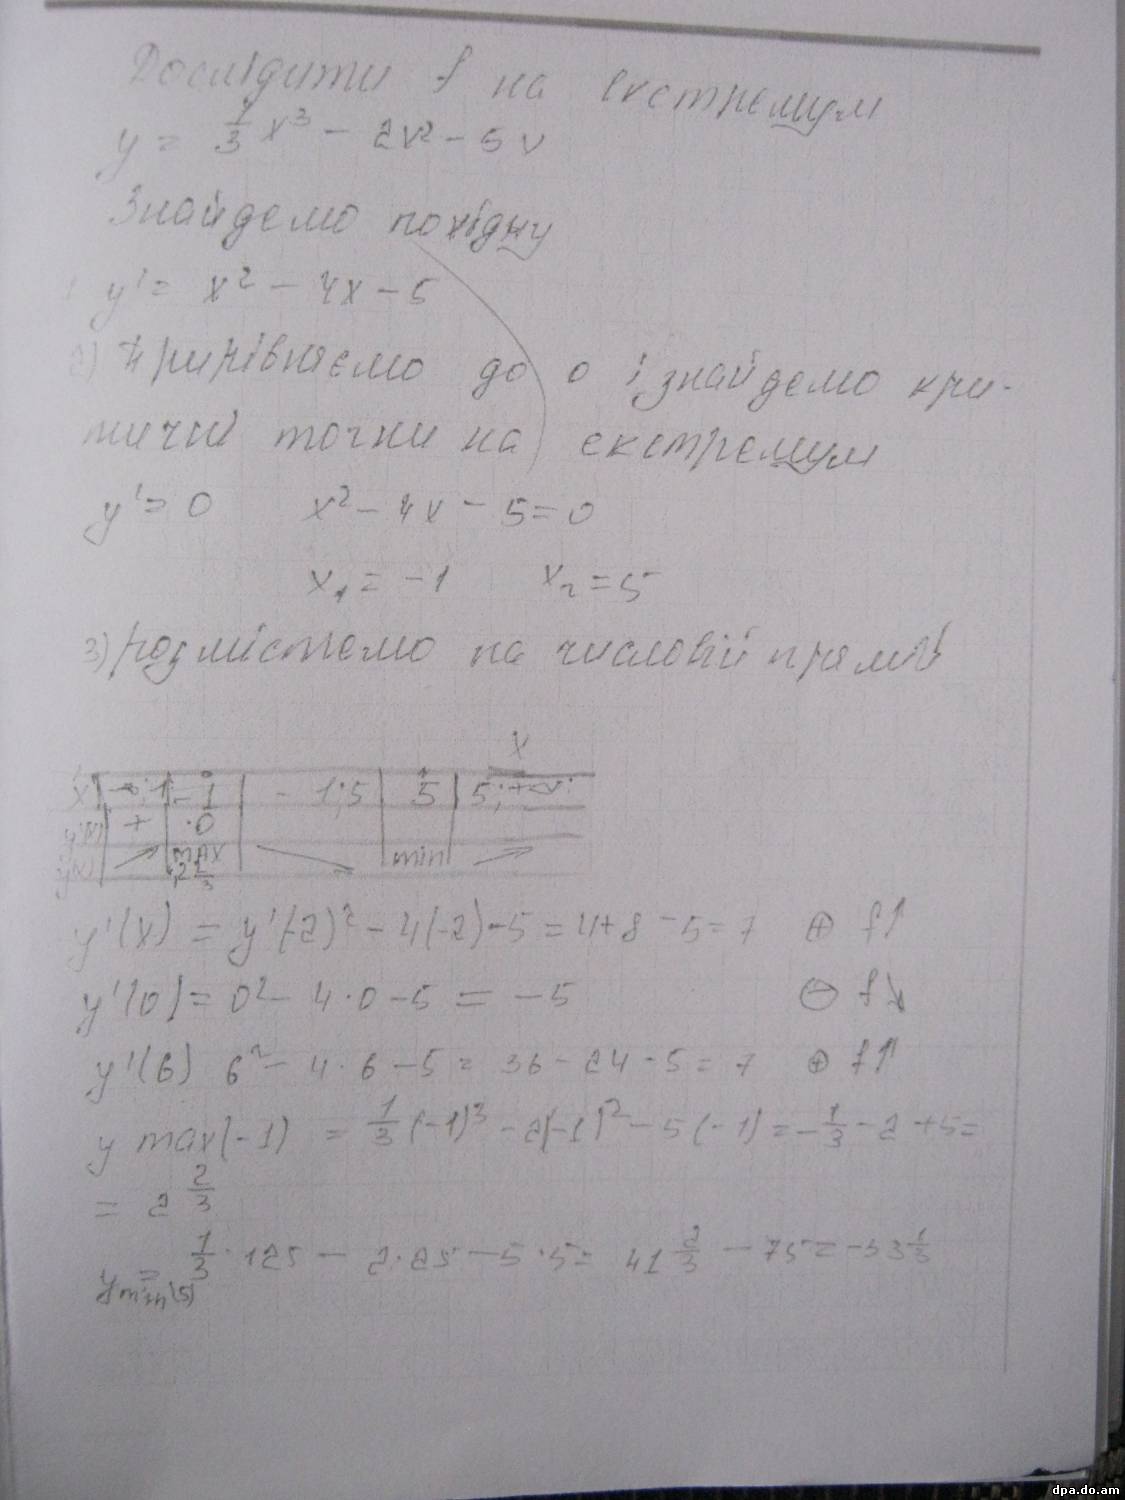 Дослідити f на екстремум
y = 1/3 x³ - 2x² - 5x
Знайдемо похідну
y' = x² - 4x - 5
2) прирівняємо до 0 і знайдемо кри-
тичні точки на екстремум
y' = 0 x² - 4x - 5 = 0
x₁ = -1 x₂ = 5
3) розмістемо на числовій прямій
X
x -∞; -1 -1 -1; 5 5 5; +∞
y'(x) + 0
y(x) ↗ max 2 2/3 ↘ min ↗
y'(x) = y'(-2)² - 4(-2) - 5 = 4 + 8 - 5 = 7 ⊕ f↑
y'(0) = 0² - 4·0 - 5 = -5 ⊖ f↓
y'(6) 6² - 4·6 - 5 = 36 - 24 - 5 = 7 ⊕ f↑
y max(-1) = 1/3 (-1)³ - 2(-1)² - 5(-1) = -1/3 - 2 + 5 =
= 2 2/3
y min(5) = 1/3 · 125 - 2·25 - 5·5 = 41 2/3 - 75 = -33 1/3
dpa.do.am